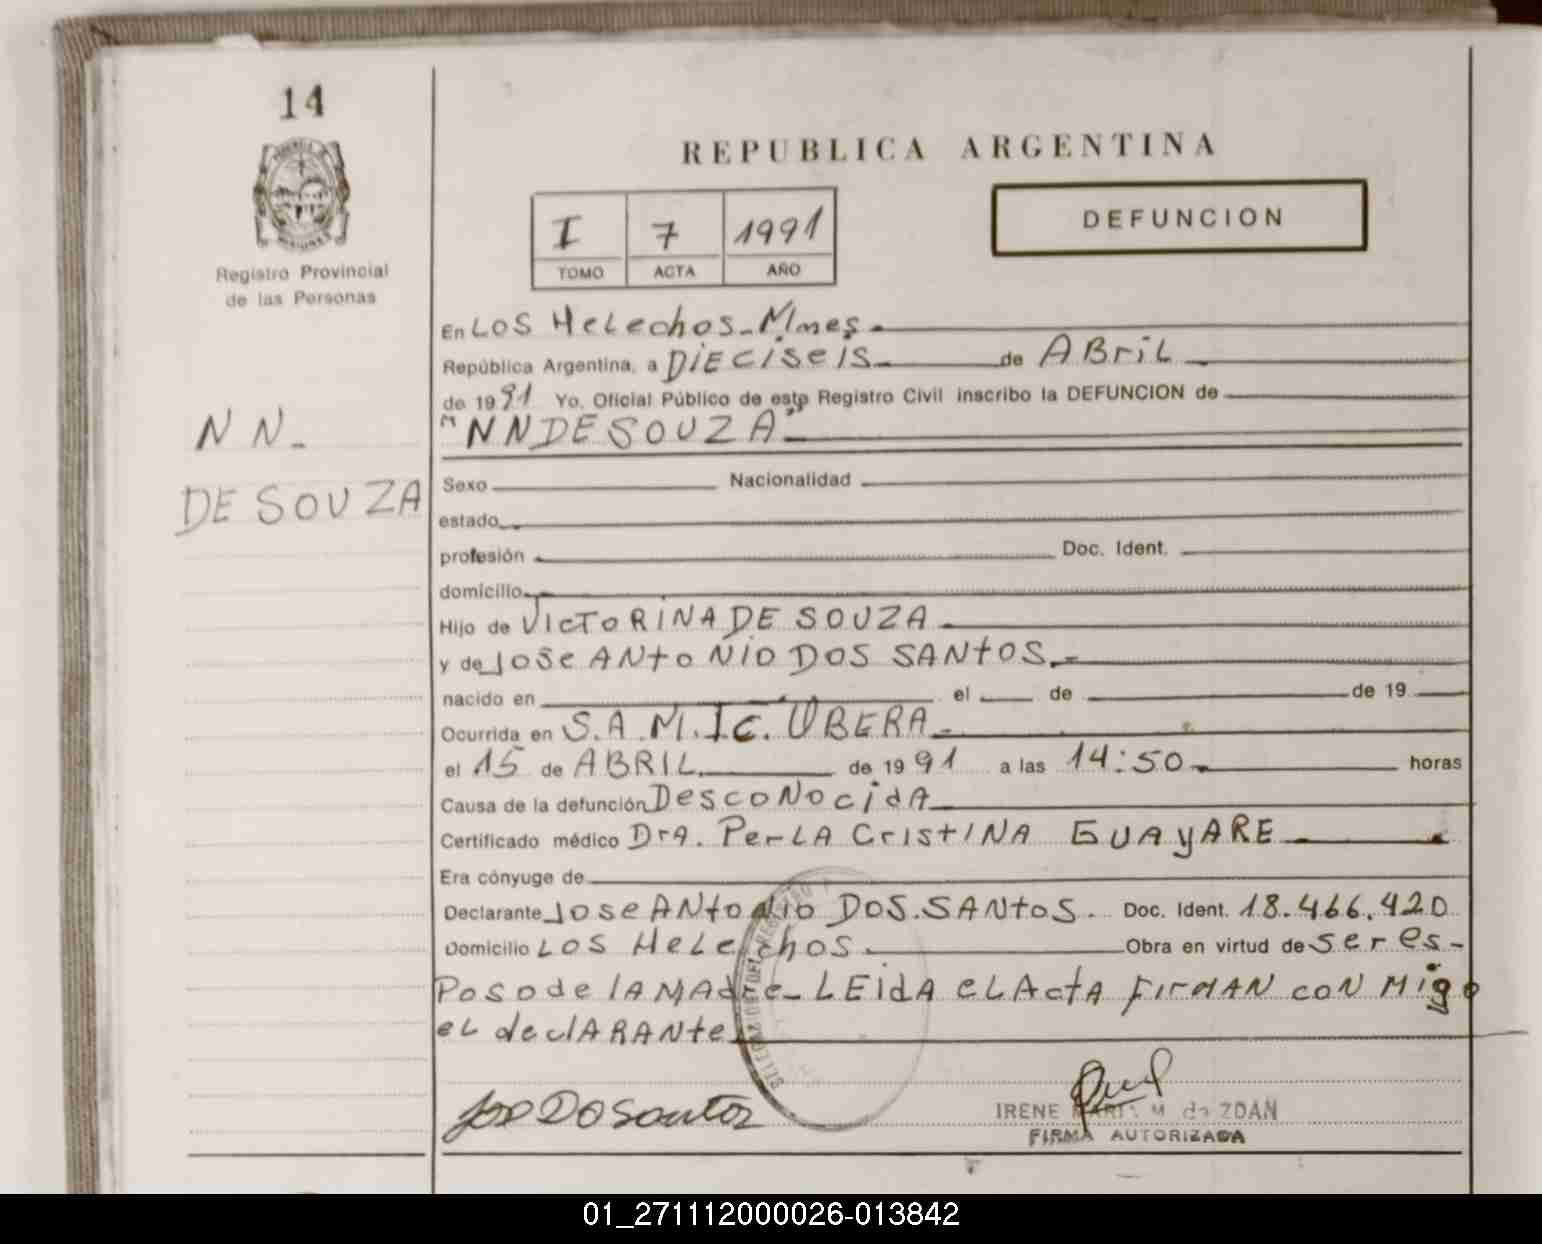 14
Registro Provincial
de las Personas
REPUBLICA ARGENTINA
I 7 1991
TOMO ACTA AÑO
DEFUNCION
En LOS HeLechos-Mnes.
República Argentina, a DiECiSeiS de ABriL
de 1991 Yo, Oficial Público de este Registro Civil inscribo la DEFUNCION de
"NN DE SOUZA"
NN-
DE SOUZA
Sexo Nacionalidad
estado
profesión Doc. Ident.
domicilio
Hijo de VicTORiNA DE SOUZA
y de JOSe ANtoNiO DOS SANtOS.-
nacido en el de de 19
Ocurrida en S.A.M.I.C. OBERA
el 15 de ABRIL de 1991 a las 14:50 horas
Causa de la defunción DescoNocidA
Certificado médico DrA. PerLA CristiNA GUAyARE
Era cónyuge de
Declarante Jose ANtoNio DOS.SANtOS. Doc. Ident. 18.466.420
Domicilio LOS HeLechos Obra en virtud de ser es-
Poso de lA MAdre- LEidA eL ActA FirMAN coN Migo
eL declARANte
Jose Do Santos
IRENE MARIA M de ZDAN
FIRMA AUTORIZADA
01_271112000026-013842